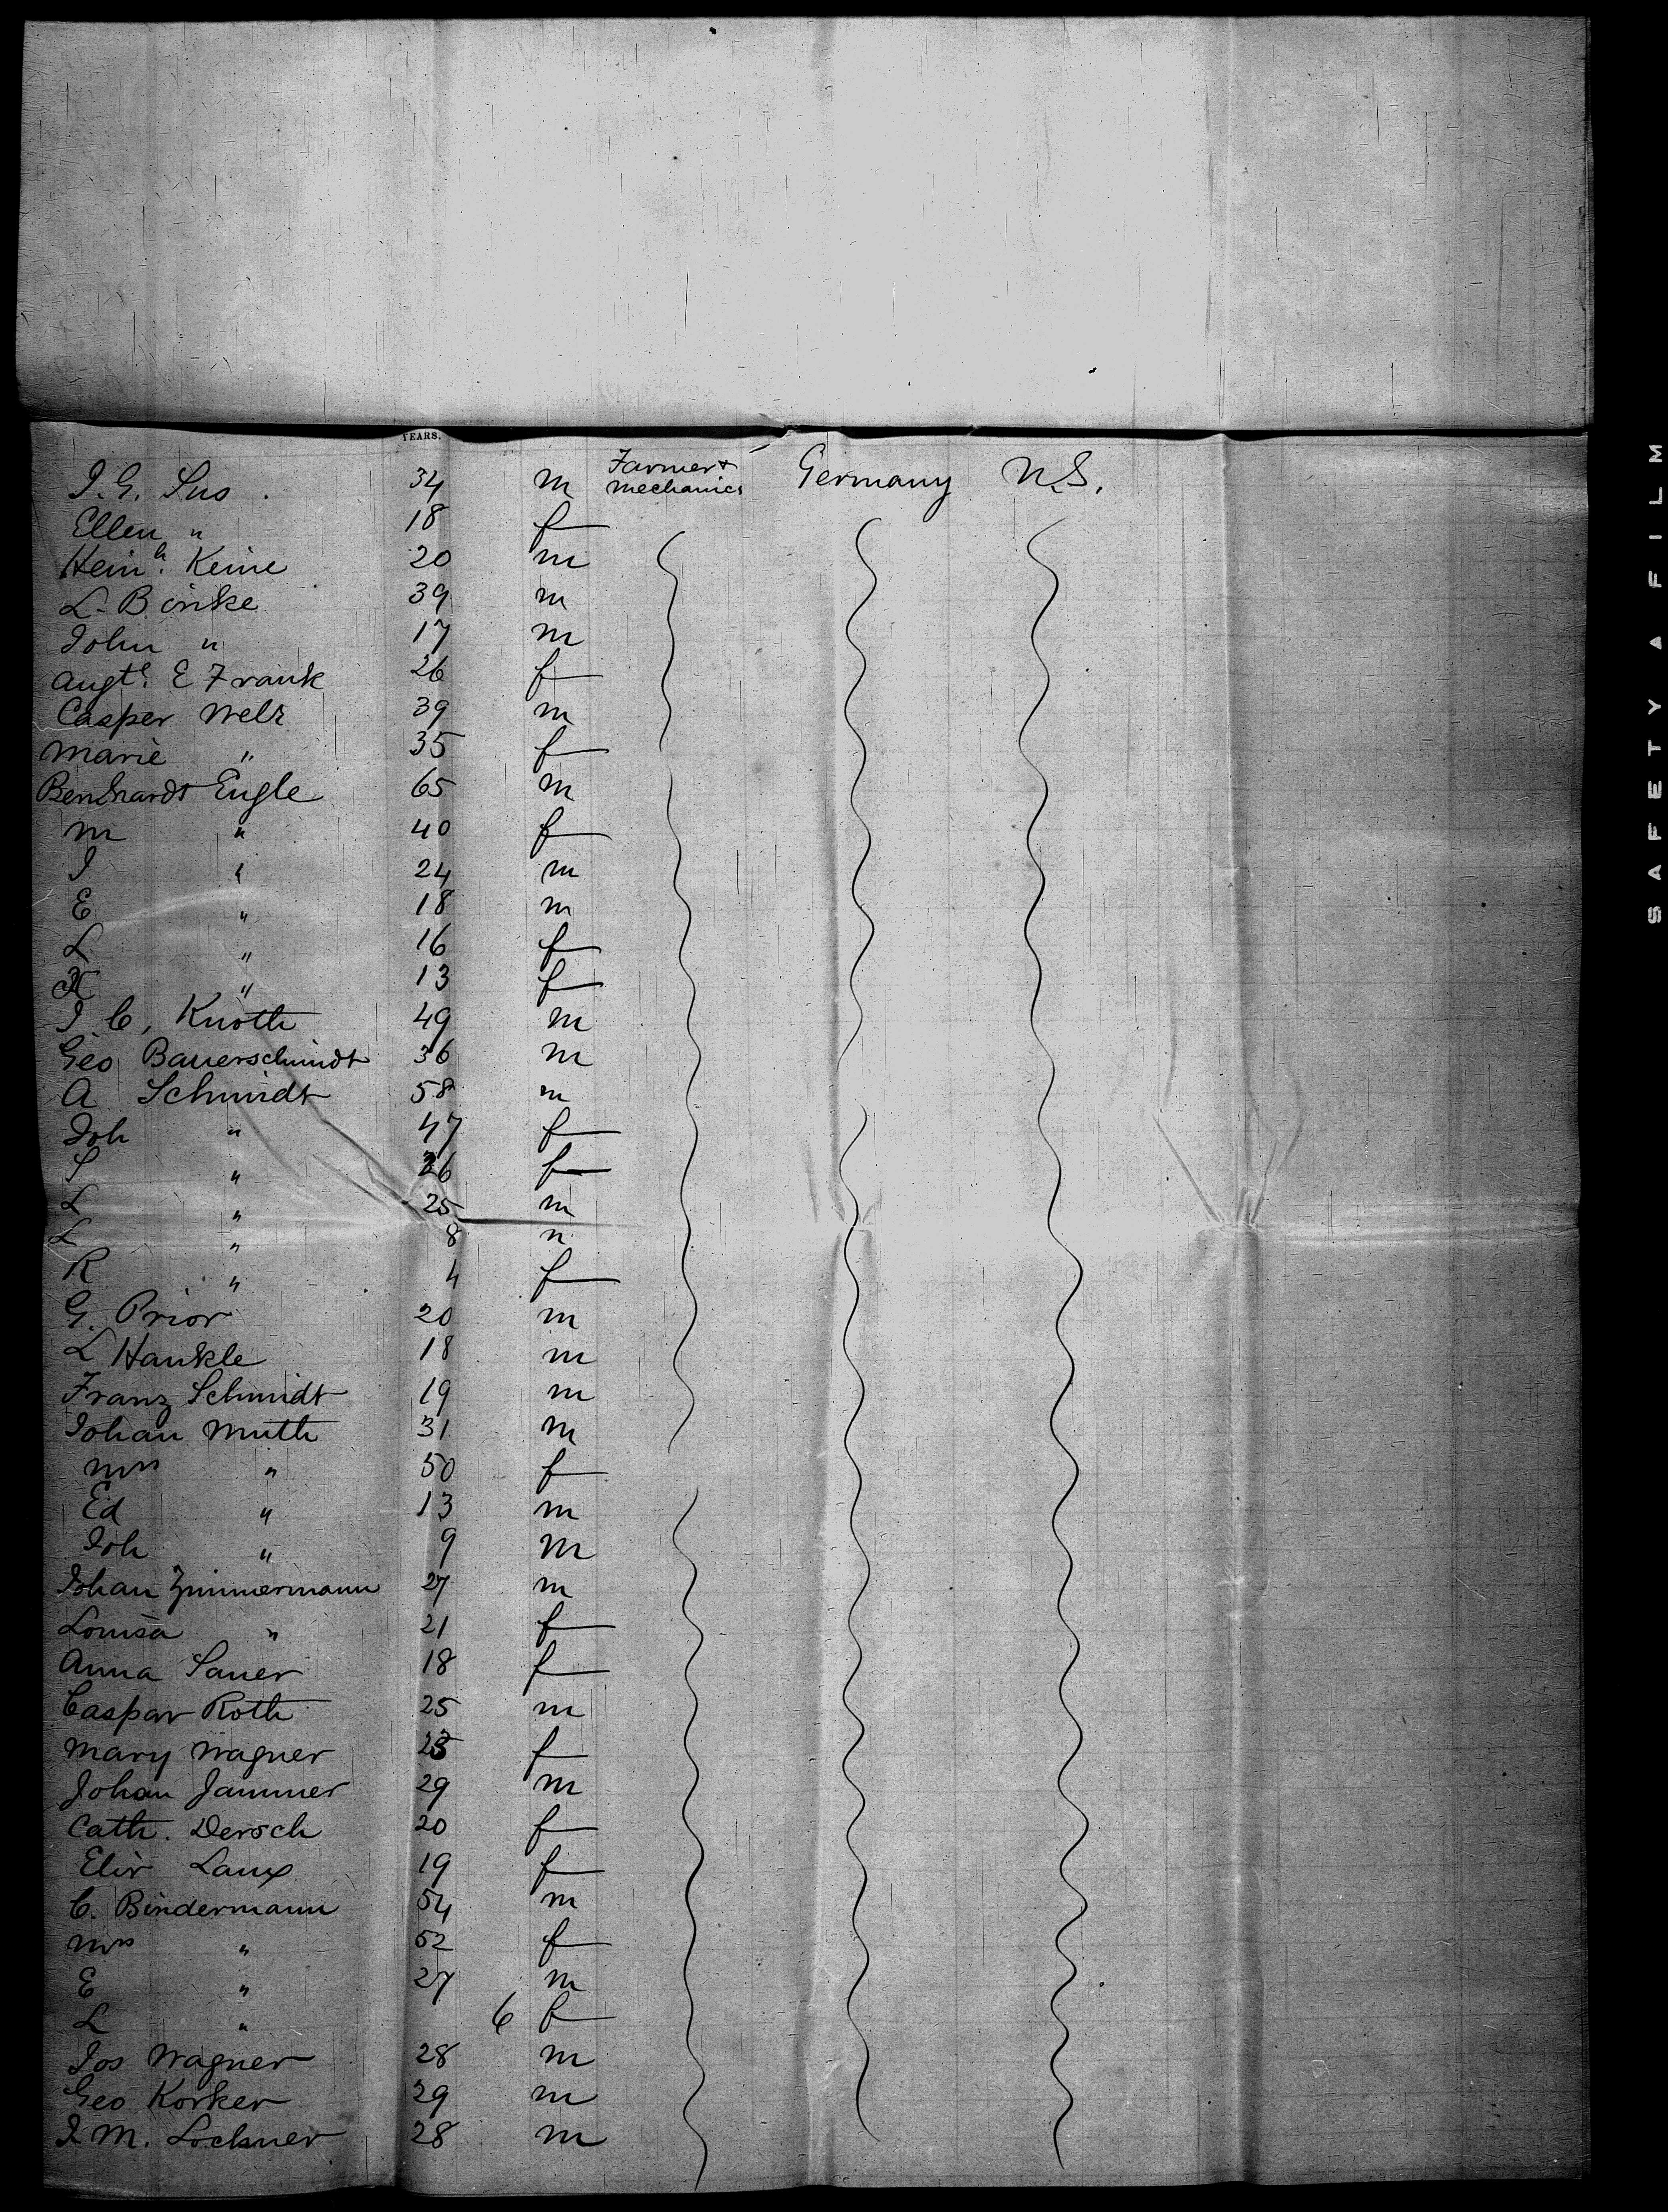 YEARS.
J. G. Sus 34 m Farmer + mechanics Germany N.S.
Ellen " 18 f
Heinh. Keine 20 m
L. Bönke 39 m
John " 17 m
Augte. E Frank 26 f
Casper Welz 39 m
Marie " 35 f
Benhardt Engle 65 m
M " 40 f
J " 24 m
E " 18 m
L " 16 f
" 13 f
J. C. Knoth 49 m
Geo Bauerschmidt 36 m
A Schmidt 58 m
Joh " 47 f
S " 26 f
L " 25 m
L " 8 m
R " 4 f
G. Prior 20 m
L Hankle 18 m
Franz Schmidt 19 m
Johan Muth 31 m
Mrs " 50 f
Ed " 13 m
Joh " 9 m
Johan Zimmermann 27 m
Louisa " 21 f
Anna Sauer 18 f
Caspar Roth 25 m
Mary Wagner f
Johan Jammer 29 m
Cath. Dersch 20 f
Elis Laux 19 f
C. Bindermann 54 m
Mrs " 52 f
E " 27 m
L " 6 f
Jos Wagner 28 m
Geo Korker 29 m
J M. Lochner 28 m
SAFETY FILM